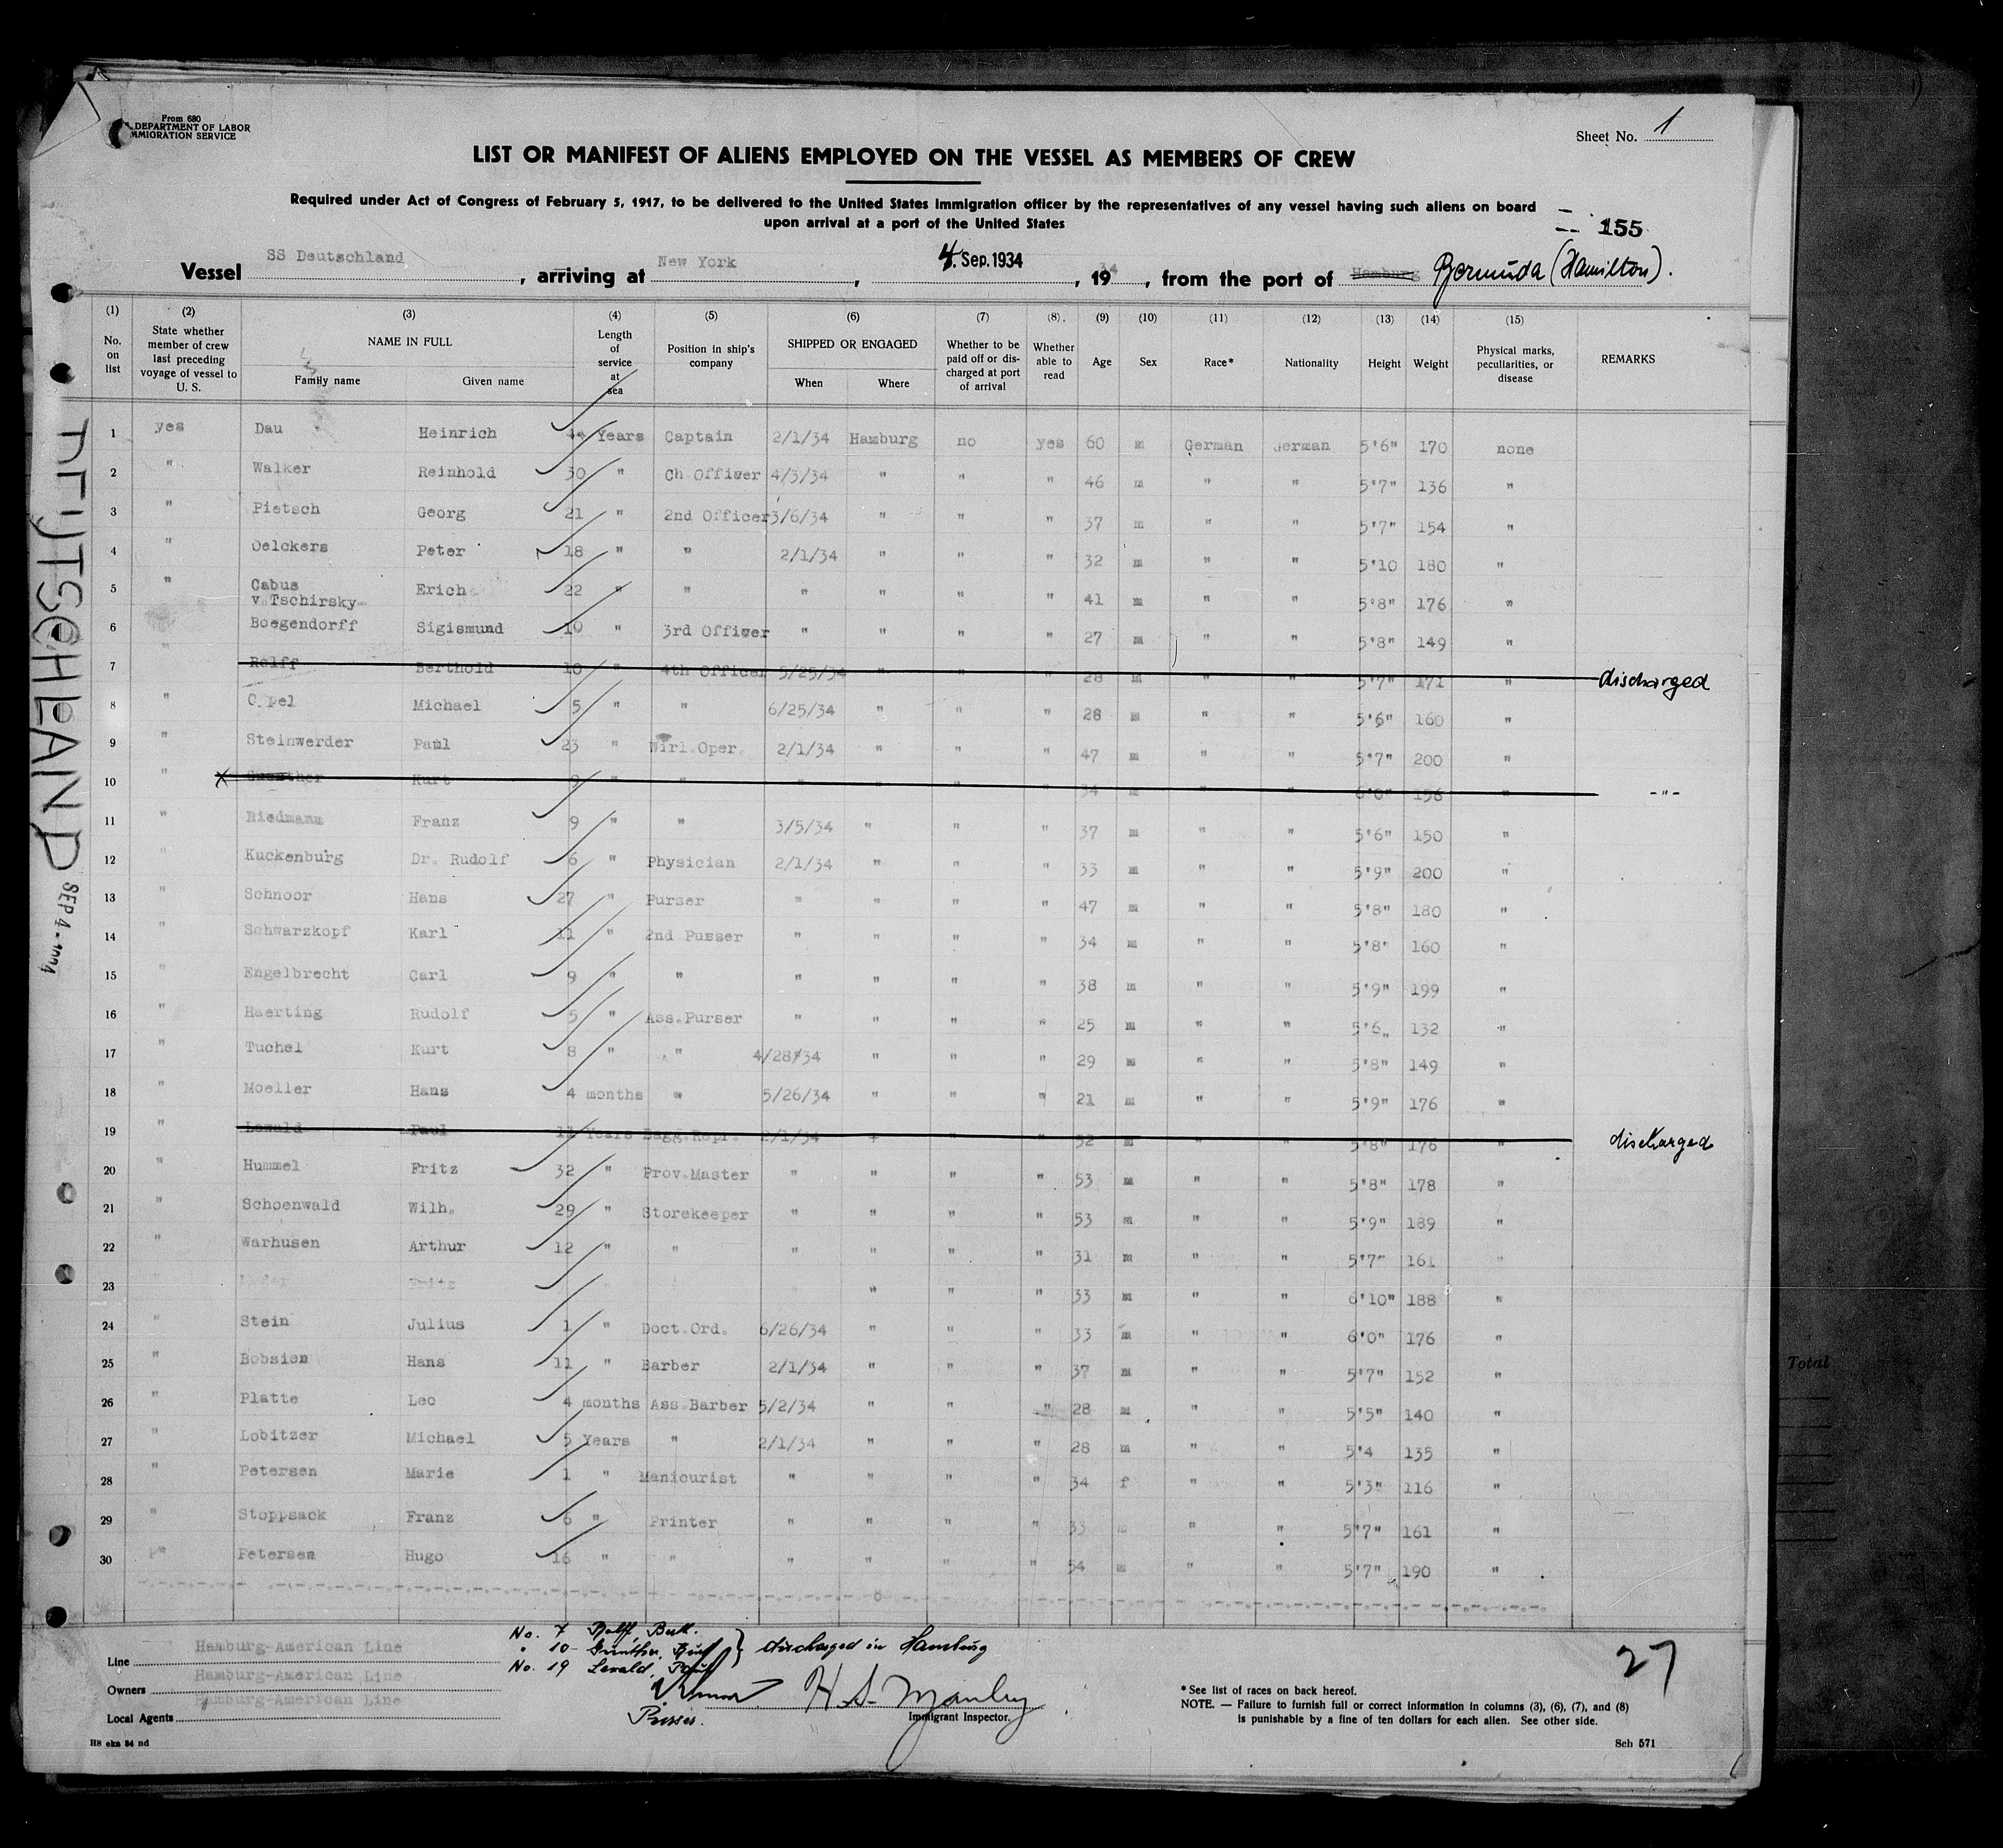 From 680
DEPARTMENT OF LABOR
MMIGRATION SERVICE
Sheet No. 1
LIST OR MANIFEST OF ALIENS EMPLOYED ON THE VESSEL AS MEMBERS OF CREW
Required under Act of Congress of February 5, 1917, to be delivered to the United States Immigration officer by the representatives of any vessel having such aliens on board
upon arrival at a port of the United States
155
Vessel SS Deutschland, arriving at New York, 4. Sep. 1934, 1934, from the port of Hamburg Bermuda (Hamilton).
(1) (2) (3) (4) (5) (6) (7) (8) (9) (10) (11) (12) (13) (14) (15)
No. on list
State whether member of crew last preceding voyage of vessel to U. S.
NAME IN FULL
Family name Given name
Length of service at sea
Position in ship's company
SHIPPED OR ENGAGED
When Where
Whether to be paid off or discharged at port of arrival
Whether able to read
Age Sex Race* Nationality Height Weight
Physical marks, peculiarities, or disease
REMARKS
1 yes Dau Heinrich 44 Years Captain 2/1/34 Hamburg no yes 60 m German German 5'6" 170 none
2 " Walker Reinhold 30 " Ch Officer 4/3/34 " " " 46 m " " 5'7" 136 "
3 " Pietsch Georg 21 " 2nd Officer 3/6/34 " " " 37 m " " 5'7" 154 "
4 " Oelckers Peter 18 " " 2/1/34 " " " 32 m " " 5'10 180 "
5 " Cabus Erich 22 " " " " " " 41 m " " 5'8" 176 "
v.Tschirsky-
6 Boegendorff Sigismund 10 " 3rd Officer " " " " 27 m " " 5'8" 149 "
7 " Rolff Berthold 10 " 4th Officer 5/25/34 " " " 28 m " " 5'7" 171 " discharged
8 " Michael 5 " " 6/25/34 " " " 28 m " " 5'6" 160 "
9 " Steinwerder Paul 23 " Wirl.Oper. 2/1/34 " " " 47 m " " 5'7" 200 "
10 " Guenther Kurt 9 " " " " " " 34 m " " 6'0" 156 " -"-
11 " Riedmann Franz 9 " " 3/5/34 " " " 37 m " " 5'6" 150 "
12 " Kuckenburg Dr. Rudolf 6 " Physician 2/1/34 " " " 33 m " " 5'9" 200 "
13 " Schnoor Hans 27 " Purser " " " " 47 m " " 5'8" 180 "
14 " Schwarzkopf Karl 11 " 2nd Purser " " " " 34 m " " 5'8' 160 "
15 " Engelbrecht Carl 9 " " " " " " 38 m " " 5'9" 199 "
16 " Haerting Rudolf 5 " Ass.Purser " " " " 25 m " " 5'6" 132 "
17 " Tuchel Kurt 8 " " 4/28/34 " " " 29 m " " 5'8" 149 "
18 " Moeller Hans 4 months " 5/26/34 " " " 21 m " " 5'9" 176 "
19 " Lewald Paul 11 Years Bagg.Repr. 2/1/34 " " " 52 m " " 5'8" 176 " discharged
20 " Hummel Fritz 32 " Prov.Master " " " " 53 m " " 5'8" 178 "
21 " Schoenwald Wilh. 29 " Storekeeper " " " " 53 m " " 5'9" 189 "
22 " Warhusen Arthur 12 " " " " " " 31 m " " 5'7" 161 "
23 Fritz " " " 33 m " " 6'10" 188 "
24 " Stein Julius 1 " Doct.Ord. 6/26/34 " " " 33 m " " 6'0" 176 "
25 " Bobsien Hans 11 " Barber 2/1/34 " " " 37 m " " 5'7" 152 "
26 " Platte Leo 4 months Ass.Barber 5/2/34 " " " 28 m " " 5'5" 140 "
27 " Lobitzer Michael 5 Years " 2/1/34 " " " 28 m " " 5'4 135 "
28 " Petersen Marie 1 " Manicurist " " " " 34 f " " 5'3" 116 "
29 " Stoppsack Franz 6 " Printer " " " " 33 m " " 5'7" 161 "
30 " Petersen Hugo 16 " " " " " " 54 m " " 5'7" 190 "
DEUTSCHLAND SEP 4 - 1934
Line Hamburg-American Line
Owners Hamburg-American Line
Local Agents Hamburg-American Line
No. 7 Rolff, Bert.
" 10 Günther, Kurt } discharged in Hamburg
No. 19 Lewald, Paul
H. S. Manley
Immigrant Inspector.
27
* See list of races on back hereof.
NOTE. — Failure to furnish full or correct information in columns (3), (6), (7), and (8)
is punishable by a fine of ten dollars for each alien. See other side.
H8 eka 34 nd
Sch 571
Total